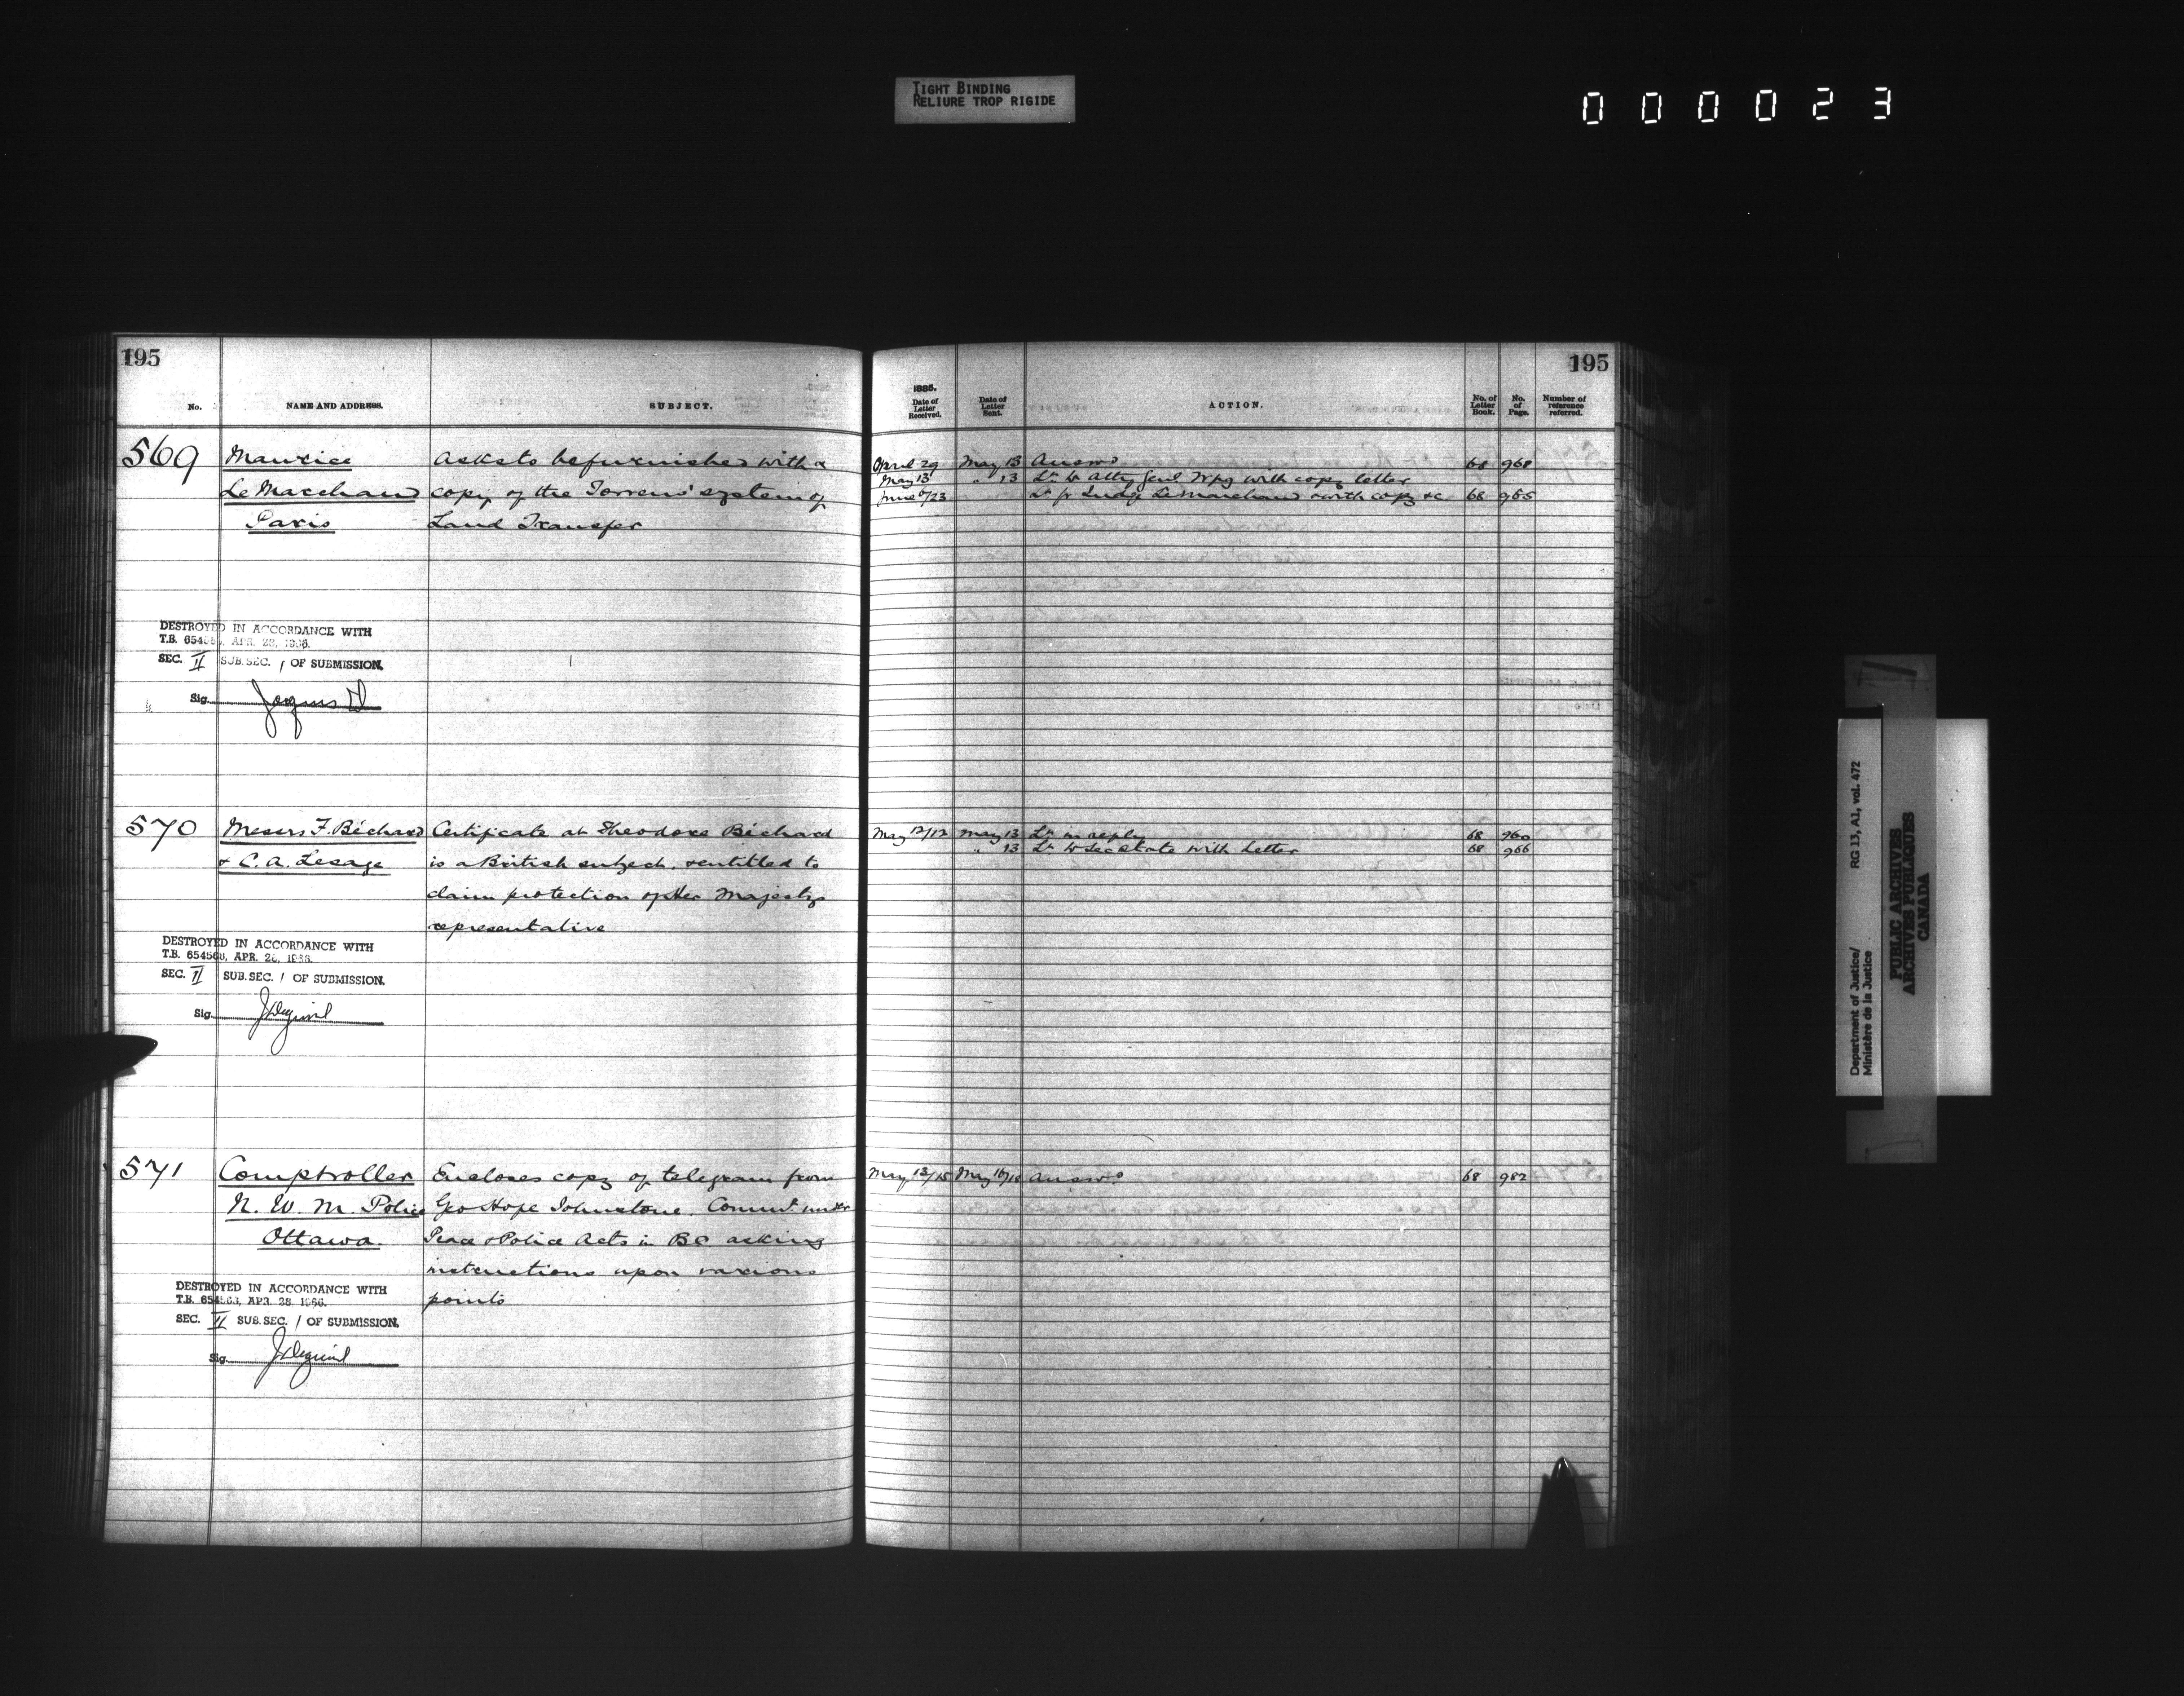 TIGHT BINDING
RELIURE TROP RIGIDE
000023
195
No. NAME AND ADDRESS. SUBJECT.
569 Maurice Asks to be furnished with a
Le Marchand copy of the Torrens' system of
Paris Land Transfer
DESTROYED IN ACCORDANCE WITH
T.B. 654 APR. 28, 1966.
SEC. II SUB. SEC. 1 OF SUBMISSION,
Sig.
570 Messrs F. Béchard Certificate at Theodore Béchard
& C. A. Lesage is a British subject, & entitled to
claim protection of Her Majesty's
representative
DESTROYED IN ACCORDANCE WITH
T.B. 654563, APR. 28, 1966.
SEC. II SUB. SEC. 1 OF SUBMISSION,
Sig.
571 Comptroller Encloses copy of telegram from
N. W. M. Police Geo Hope Johnstone. Commr under
Ottawa. Peace & Police Acts in BC asking
instructions upon various
points
DESTROYED IN ACCORDANCE WITH
T.B. 654563, APR. 28 1966.
SEC. II SUB. SEC. 1 OF SUBMISSION,
Sig.
195
1885.
Date of Letter Received. Date of Letter Sent. ACTION. No. of Letter Book. No. of Page. Number of reference referred.
April 29 May 13 Answd 68 968
May 13 " 13 Lr to Atty Genl Wpg with copy letter
June 6/23 Lr fr Judge Le Marchand with copy &c 68 965
May 12/12 May 13 Lr in reply 68 960
" 13 Lr to Sec State with Letter 68 966
May 13/15 May 16/18 Answd 68 982
Department of Justice/ RG 13, A1, vol. 472
Ministère de la Justice
PUBLIC ARCHIVES
ARCHIVES PUBLIQUES
CANADA